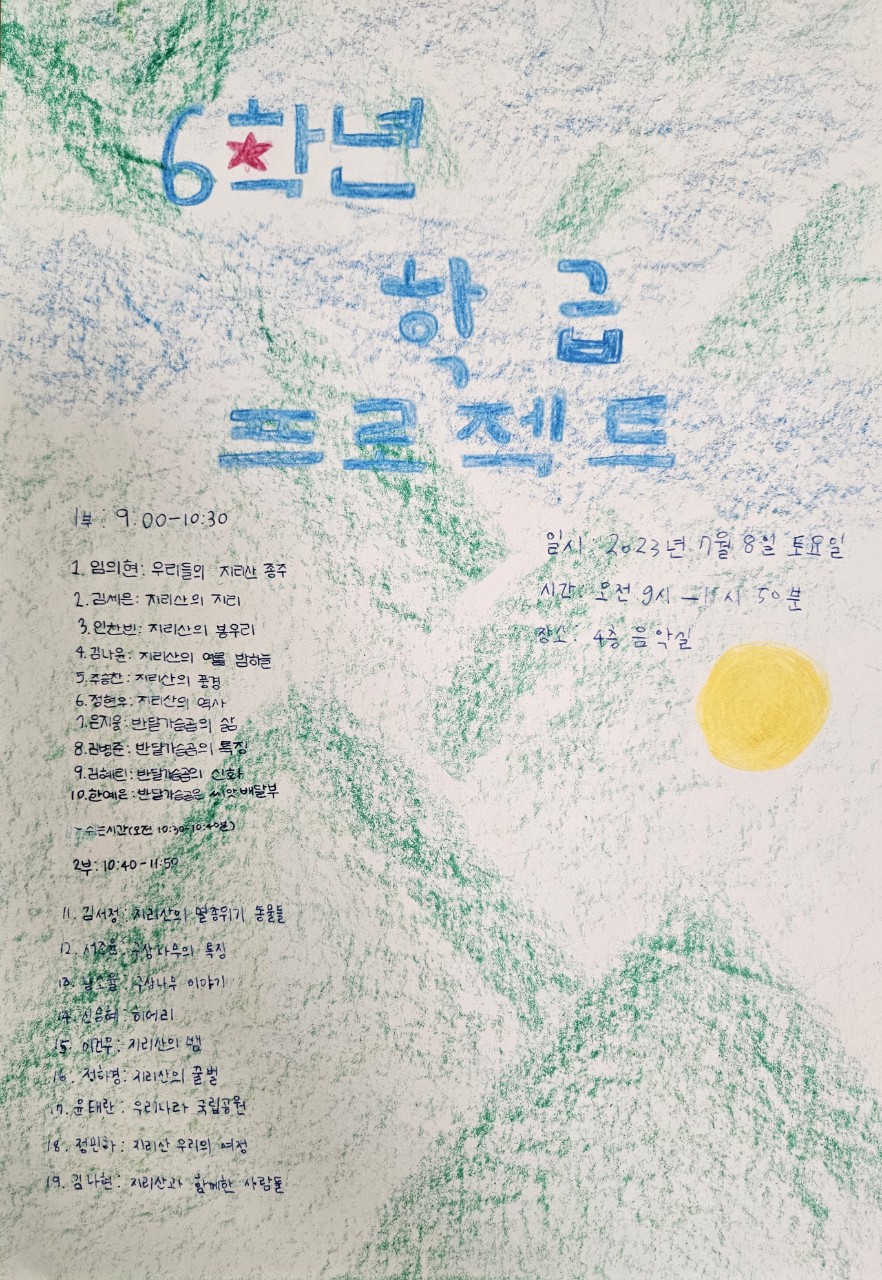 6학년
학급
프로젝트
1부: 9:00-10:30
일시: 2023년 7월 8일 토요일
시간: 오전 9시 - 11시 50분
장소: 4층 음악실
1. 임의현: 우리들의 지리산 종주
2. 김세은: 지리산의 지리
3. 안찬빈: 지리산의 봉우리
4. 김나윤: 지리산의 여름 밤하늘
5. 주승찬: 지리산의 풍경
6. 정현우: 지리산의 역사
7. 윤지웅: 반달가슴곰의 삶
8. 김병준: 반달가슴곰의 특징
9. 김혜티: 반달가슴곰의 신화
10. 한예은: 반달가슴곰은 씨앗배달부
쉬는시간(오전 10:30-10:40분)
2부: 10:40-11:50
11. 김서정: 지리산의 멸종위기 동물들
12. 구상나무의 특징
13. 구상나무 이야기
14. 신승혜: 히어리
15. 이건우: 지리산의 뱀
16. 정하경: 지리산의 꿀벌
17. 윤태란: 우리나라 국립공원
18. 정민하: 지리산 우리의 여정
19. 김나현: 지리산과 함께한 사람들